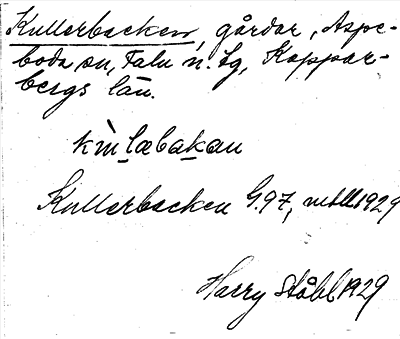 Kullerbacken, gårdar, Aspe-
boda sn, Falu n. tg, Koppar-
bergs län.
Kullerbacken G.97, 1929
Harry Ståhl 1929